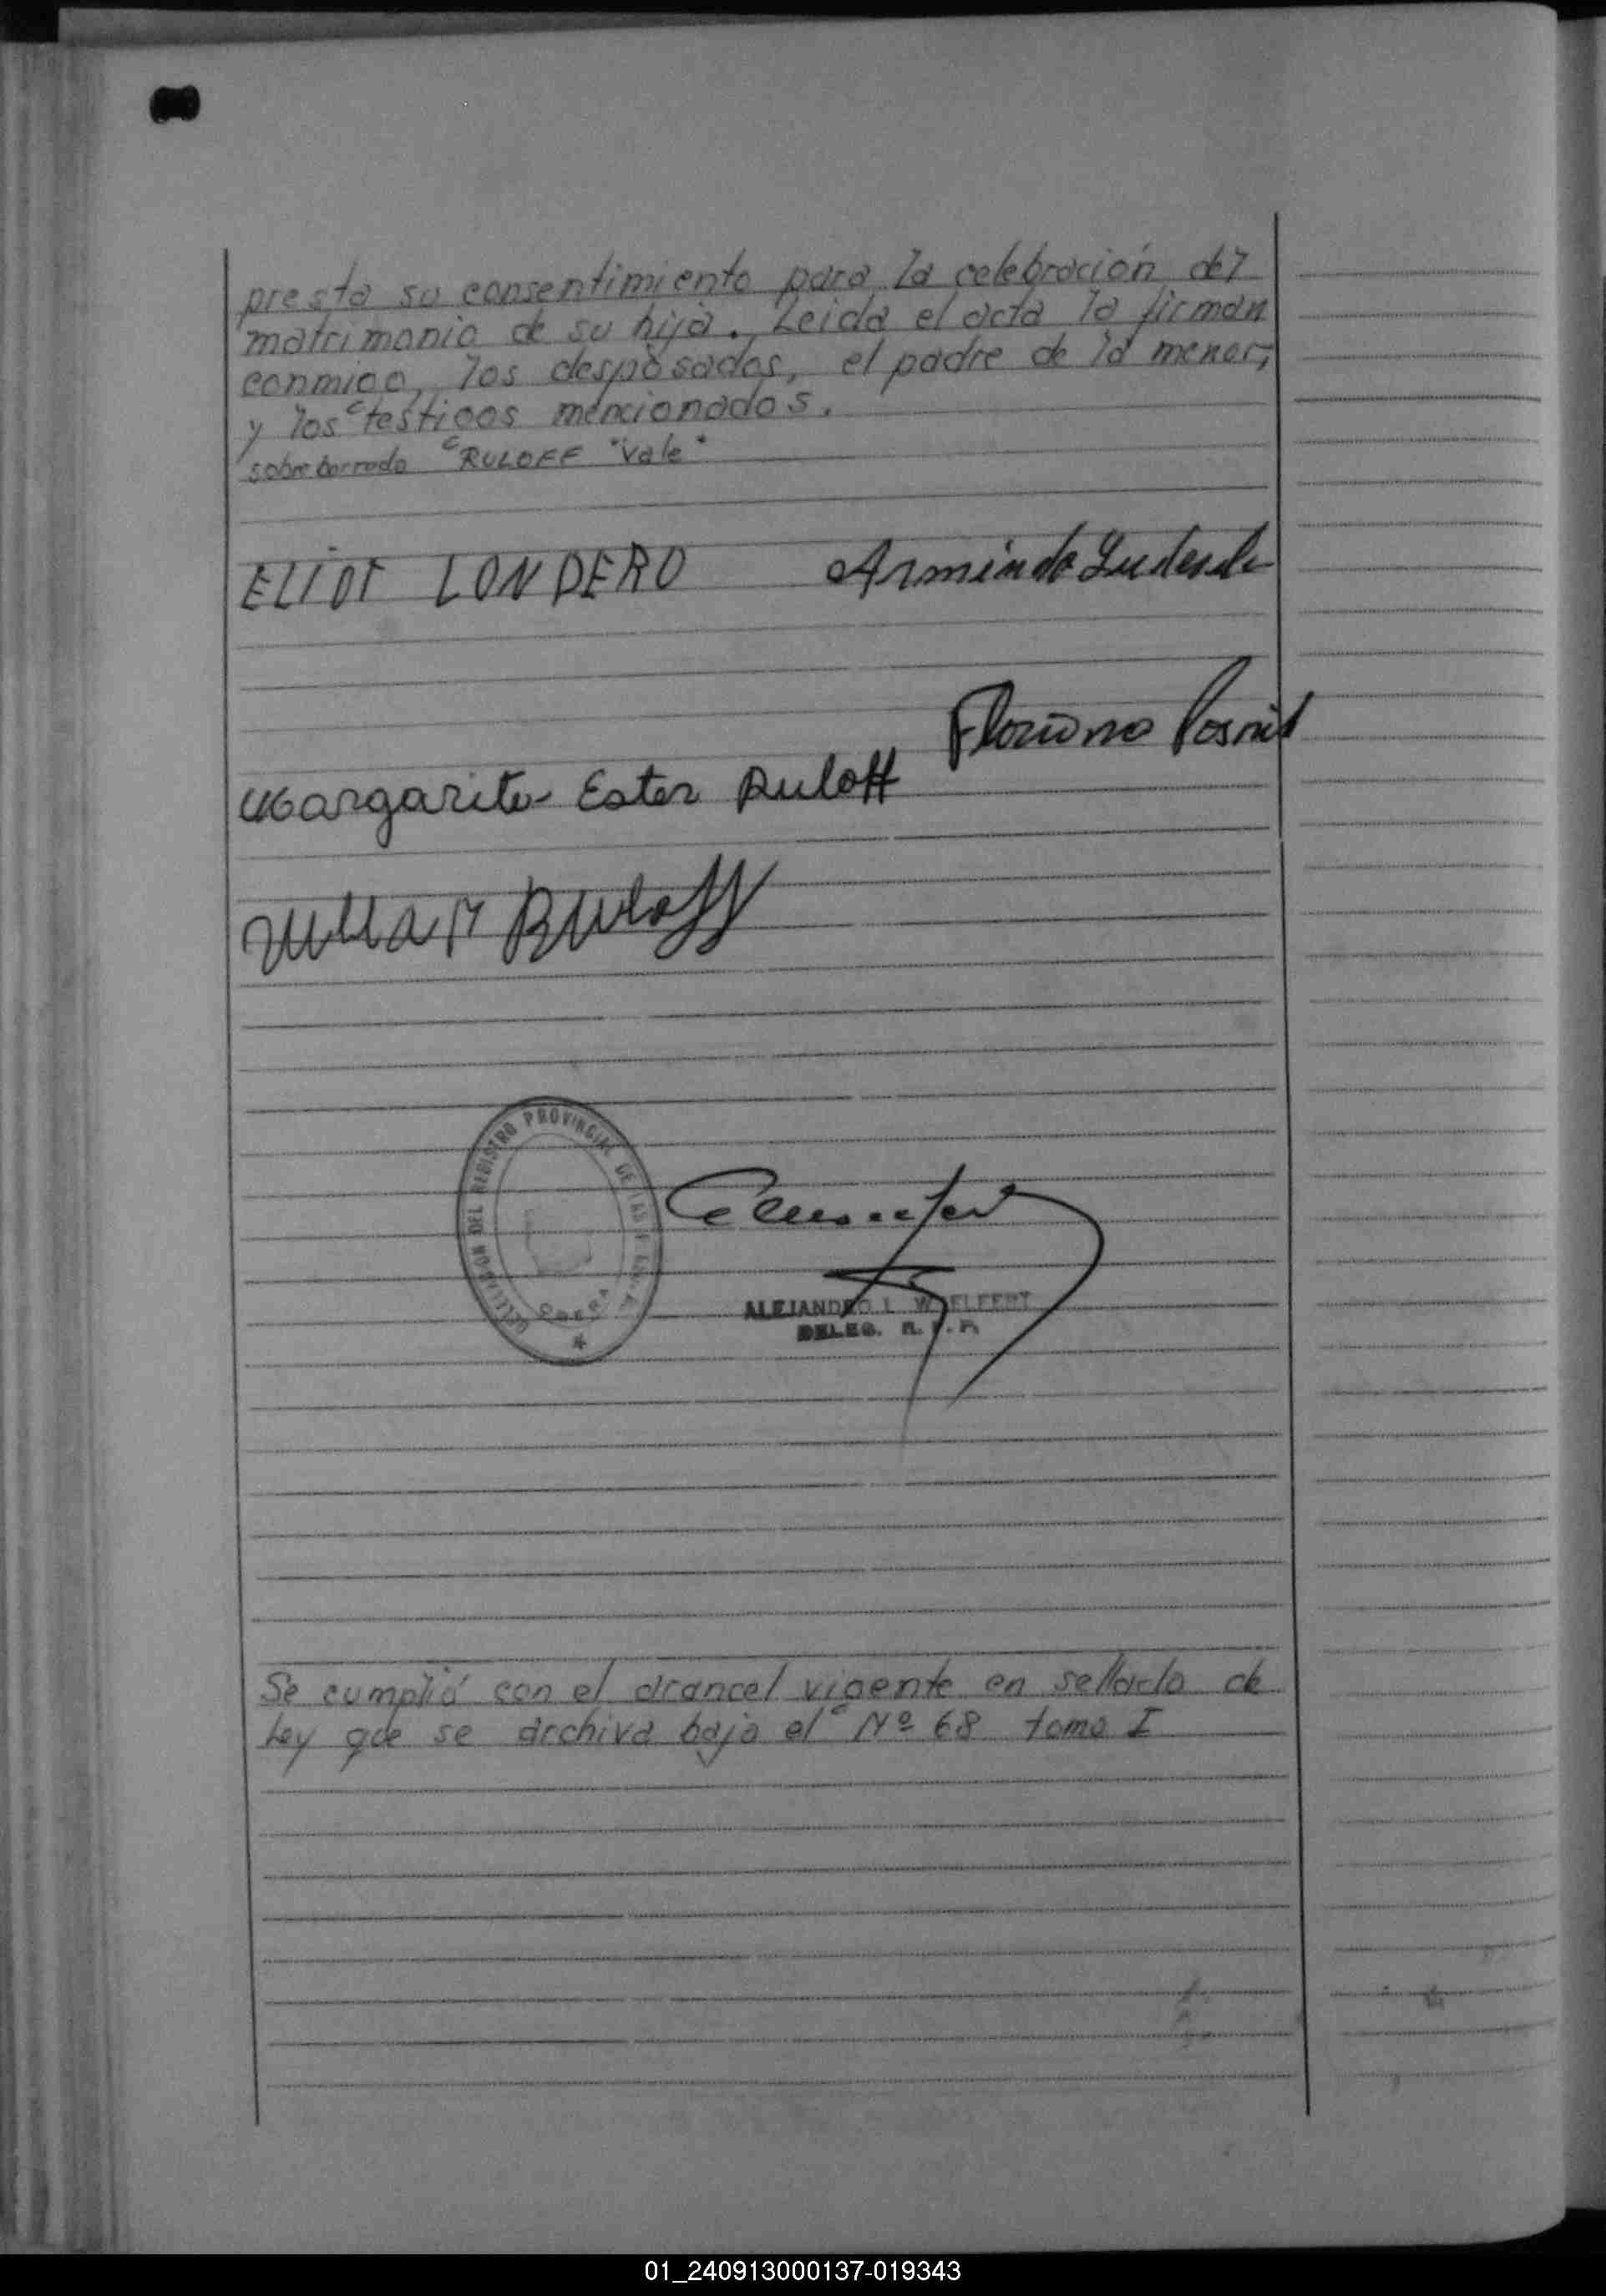 presta su consentimiento para la celebración del
matrimonio de su hija. Leida el acta la firman
conmigo, los desposados, el padre de la menor,
y los testigos mencionados.
sobre borrado "RULOFF "Vale"
ELIOT LONDERO Armindo
Floriano
Margarita Ester Ruloff
Ruloff
DELEGACION DEL REGISTRO PROVINCIAL DE LAS
OBERA
ALEJANDRO L. WOELFERT
DELEG. R. P. P.
Se cumplió con el arancel vigente en sellado de
Ley que se archiva bajo el Nº 68 tomo I
01_240913000137-019343